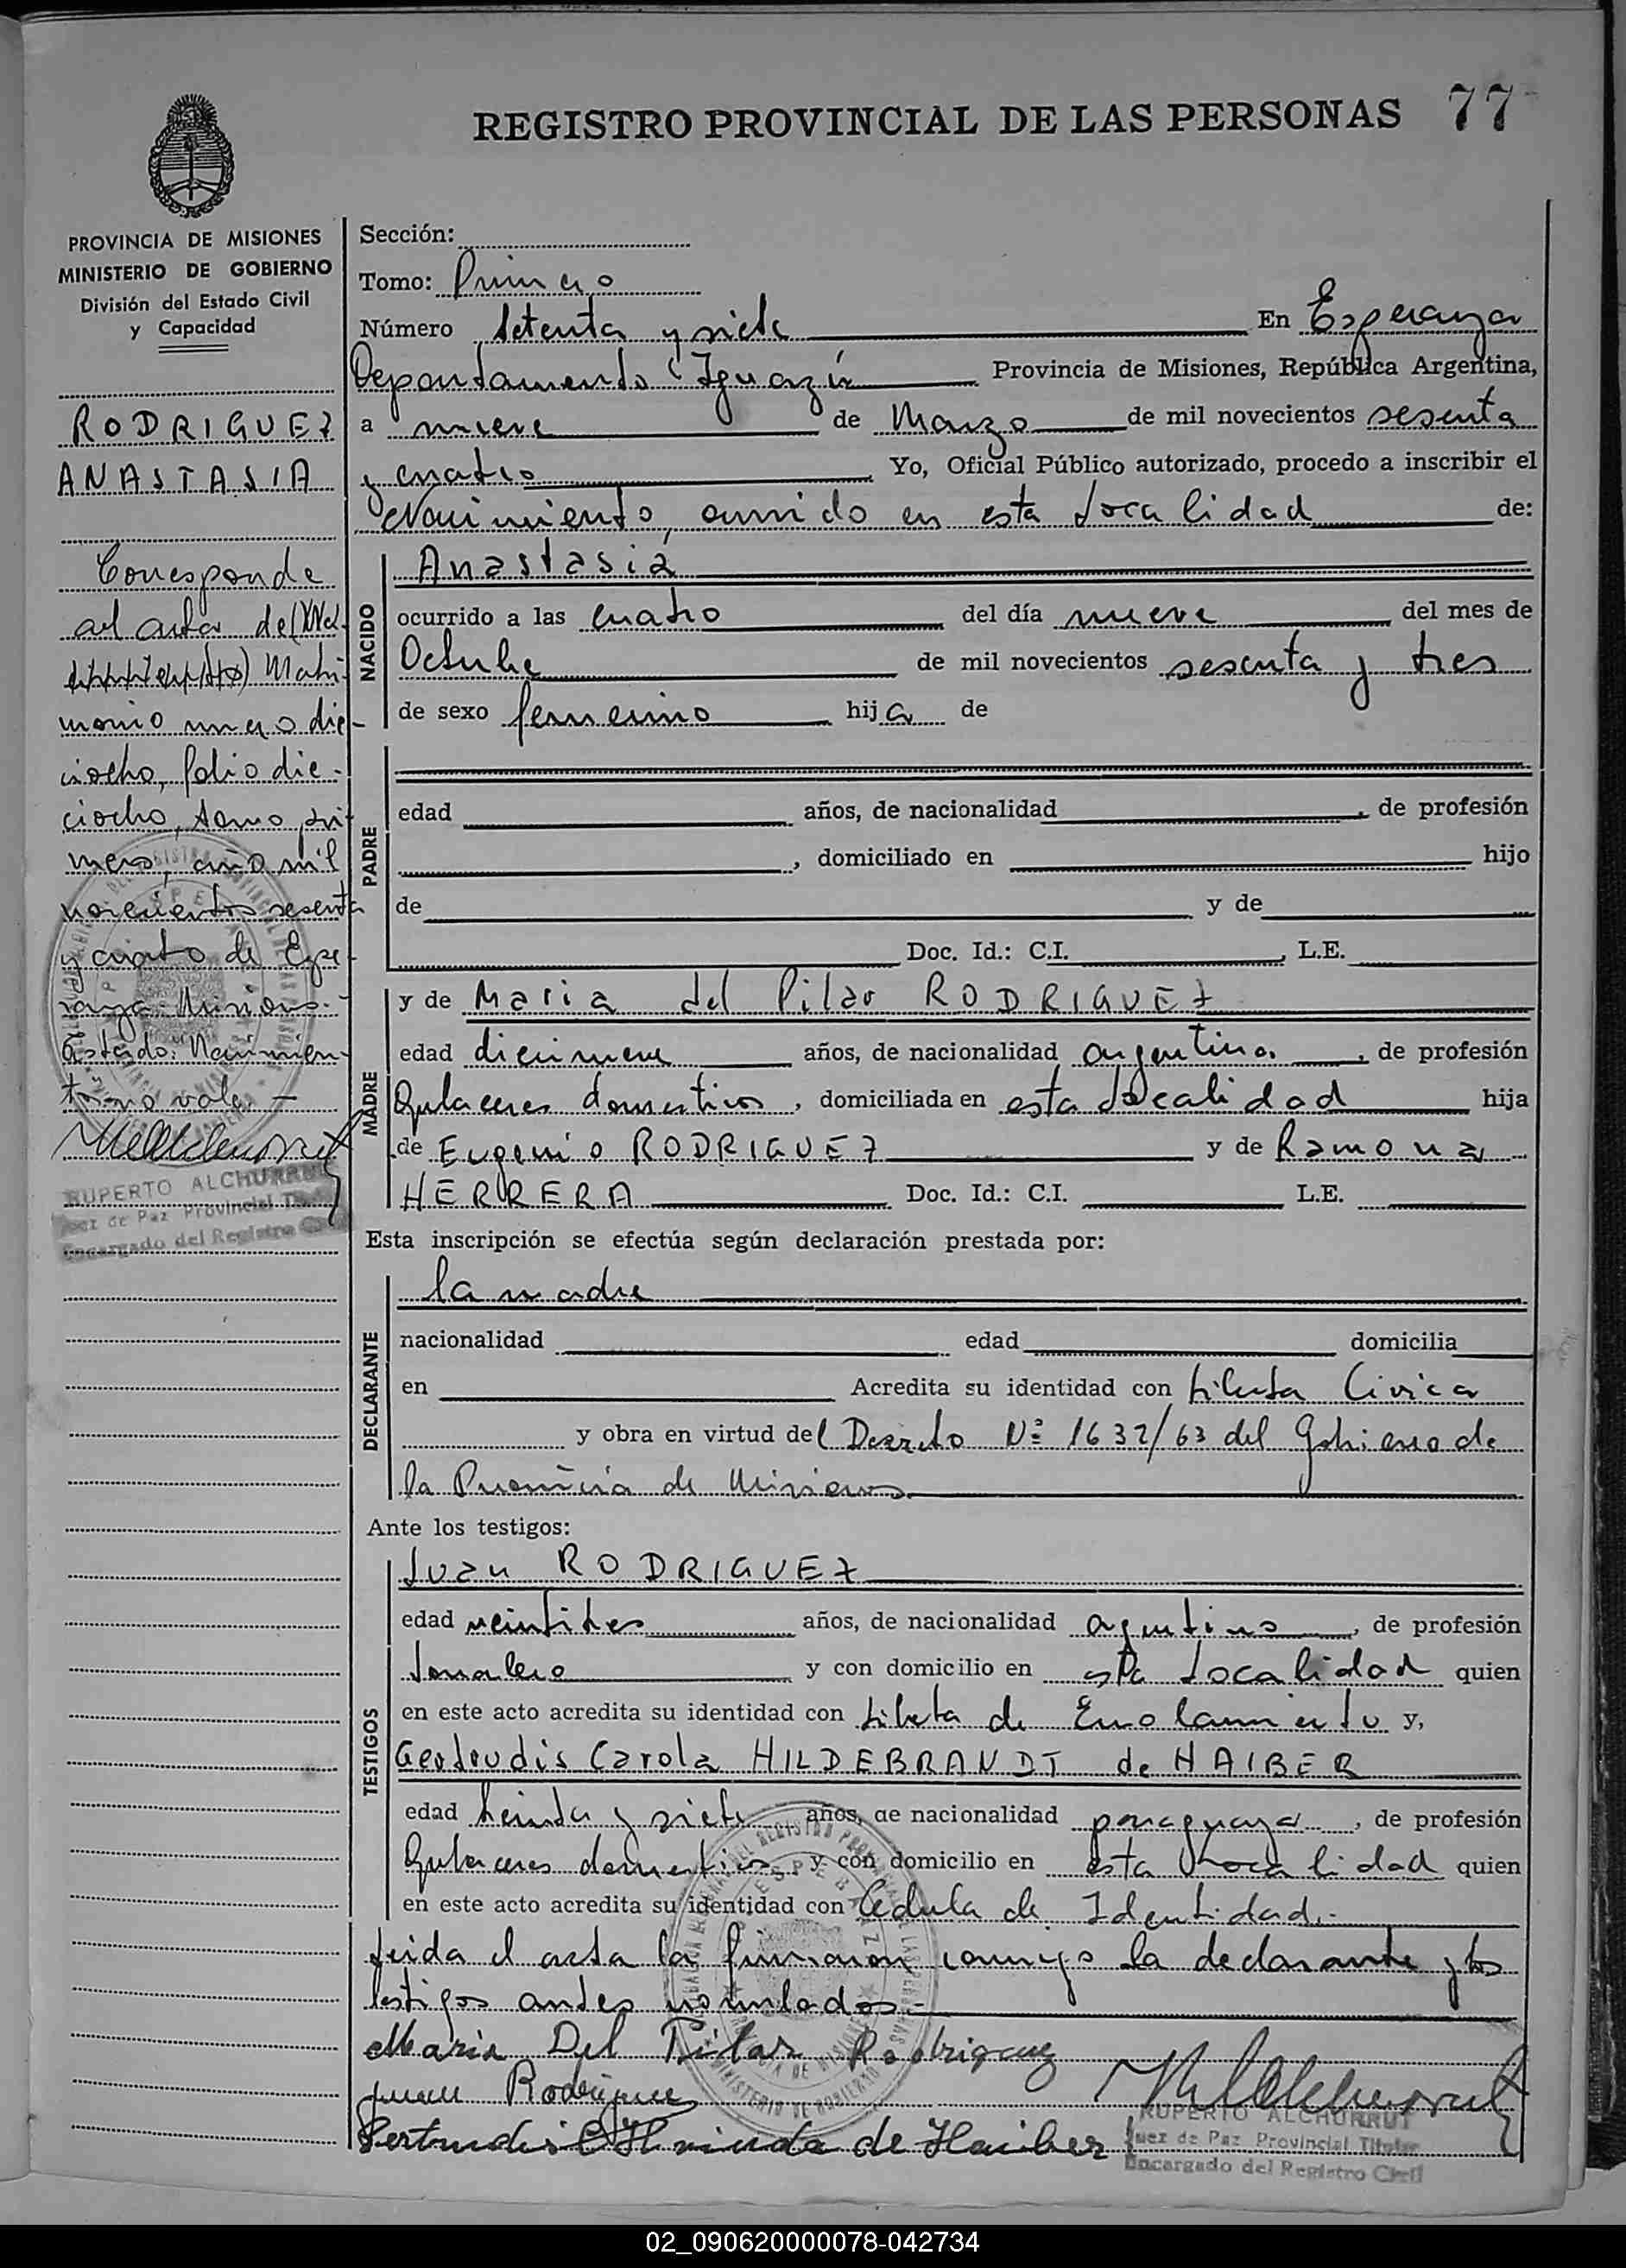 REGISTRO PROVINCIAL DE LAS PERSONAS 77
PROVINCIA DE MISIONES
MINISTERIO DE GOBIERNO
División del Estado Civil
y Capacidad
RODRIGUEZ
ANASTASIA
Corresponde
al acta de
Matri-
monio número die-
ciocho, folio die-
ciocho, tomo pri-
mero, año mil
novecientos sesenta
y cuatro de Espe-
ranza - Misiones.-
Testado: Nacimien-
to: no vale.-
RUPERTO ALCHURRUT
Juez de Paz Provincial Titular
Encargado del Registro Civil
Sección:
Tomo: Primero
Número Setenta y siete En Esperanza
Departamento Iguazú Provincia de Misiones, República Argentina,
a nueve de Marzo de mil novecientos sesenta
y cuatro Yo, Oficial Público autorizado, procedo a inscribir el
Nacimiento, ocurrido en esta Localidad de:
NACIDO
Anastasia
ocurrido a las cuatro del día nueve del mes de
Octubre de mil novecientos sesenta y tres
de sexo femenino hija de
PADRE
edad años, de nacionalidad, de profesión
, domiciliado en hijo
de y de
Doc. Id.: C.I. , L.E.
MADRE
y de Maria del Pilar RODRIGUEZ
edad diecinueve años, de nacionalidad argentina, de profesión
Quehaceres domesticos, domiciliada en esta Localidad hija
de Eugenio RODRIGUEZ y de Ramona
HERRERA Doc. Id.: C.I. L.E.
Esta inscripción se efectúa según declaración prestada por:
DECLARANTE
la madre
nacionalidad edad domicilia
en Acredita su identidad con Libreta Cívica
y obra en virtud del Decreto Nº 1632/63 del Gobierno de
la Provincia de Misiones
Ante los testigos:
TESTIGOS
Juan RODRIGUEZ
edad veintitres años, de nacionalidad argentino, de profesión
Jornalero y con domicilio en esta Localidad quien
en este acto acredita su identidad con Libreta de Enrolamiento y,
Gertrudis Carola HILDEBRANDT de HAIBER
edad treinta y siete años, de nacionalidad paraguaya, de profesión
Quehaceres domesticos y con domicilio en esta Localidad quien
en este acto acredita su identidad con Cedula de Identidad.-
Leida el acta la firmaron conmigo la declarante y los
testigos antes nombrados.-
Maria Del Pilar Rodriguez
Juan Rodriguez
Gertrudis C H viuda de Haiber
RUPERTO ALCHURRUT
Juez de Paz Provincial Titular
Encargado del Registro Civil
02_090620000078-042734